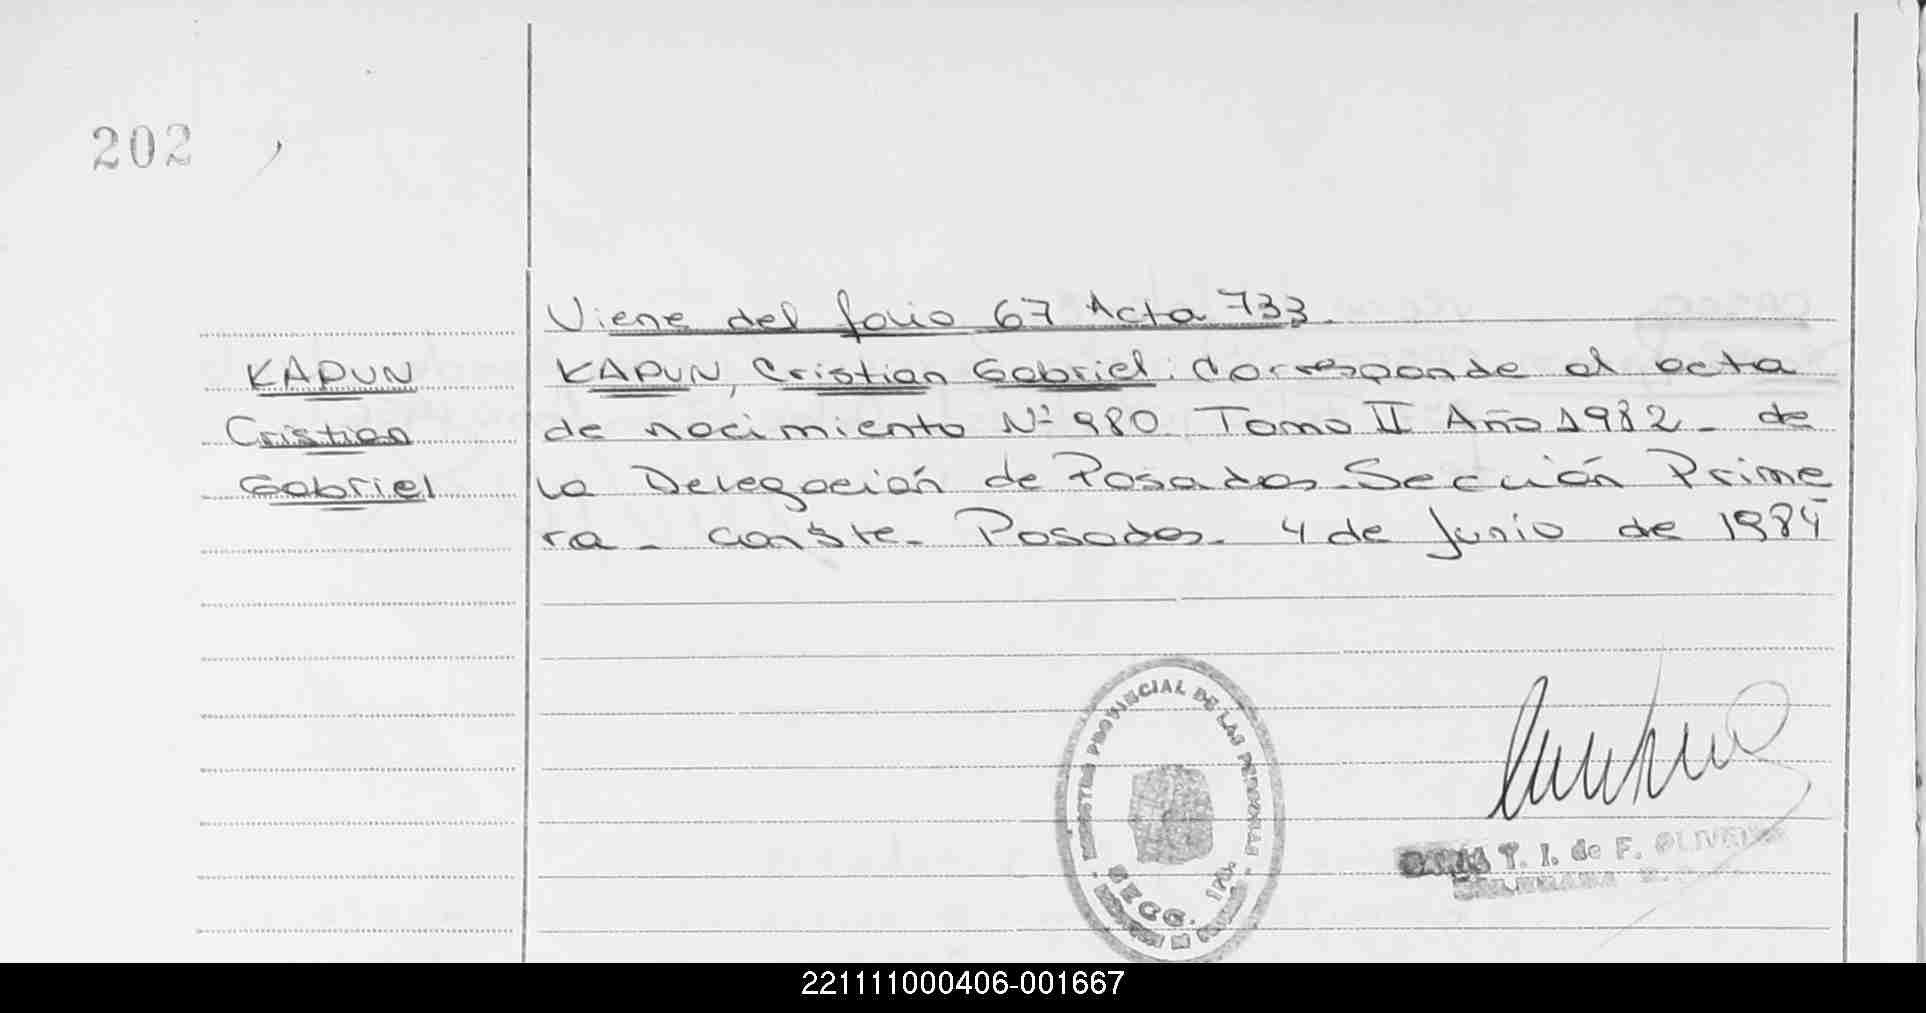 202
Viene del folio 67 Acta 733.
KAPUN
Cristian
Gabriel
KAPUN, Cristian Gabriel: Corresponde al acta
de nacimiento Nº 980 Tomo II Año 1982 - de
la Delegación de Posadas - Sección Prime
ra - conste - Posadas - 4 de Junio de 1984
REGISTRO PROVINCIAL DE LAS PERSONAS
SECC. 1RA.
T. I. de F. OLIVEIRA
221111000406-001667